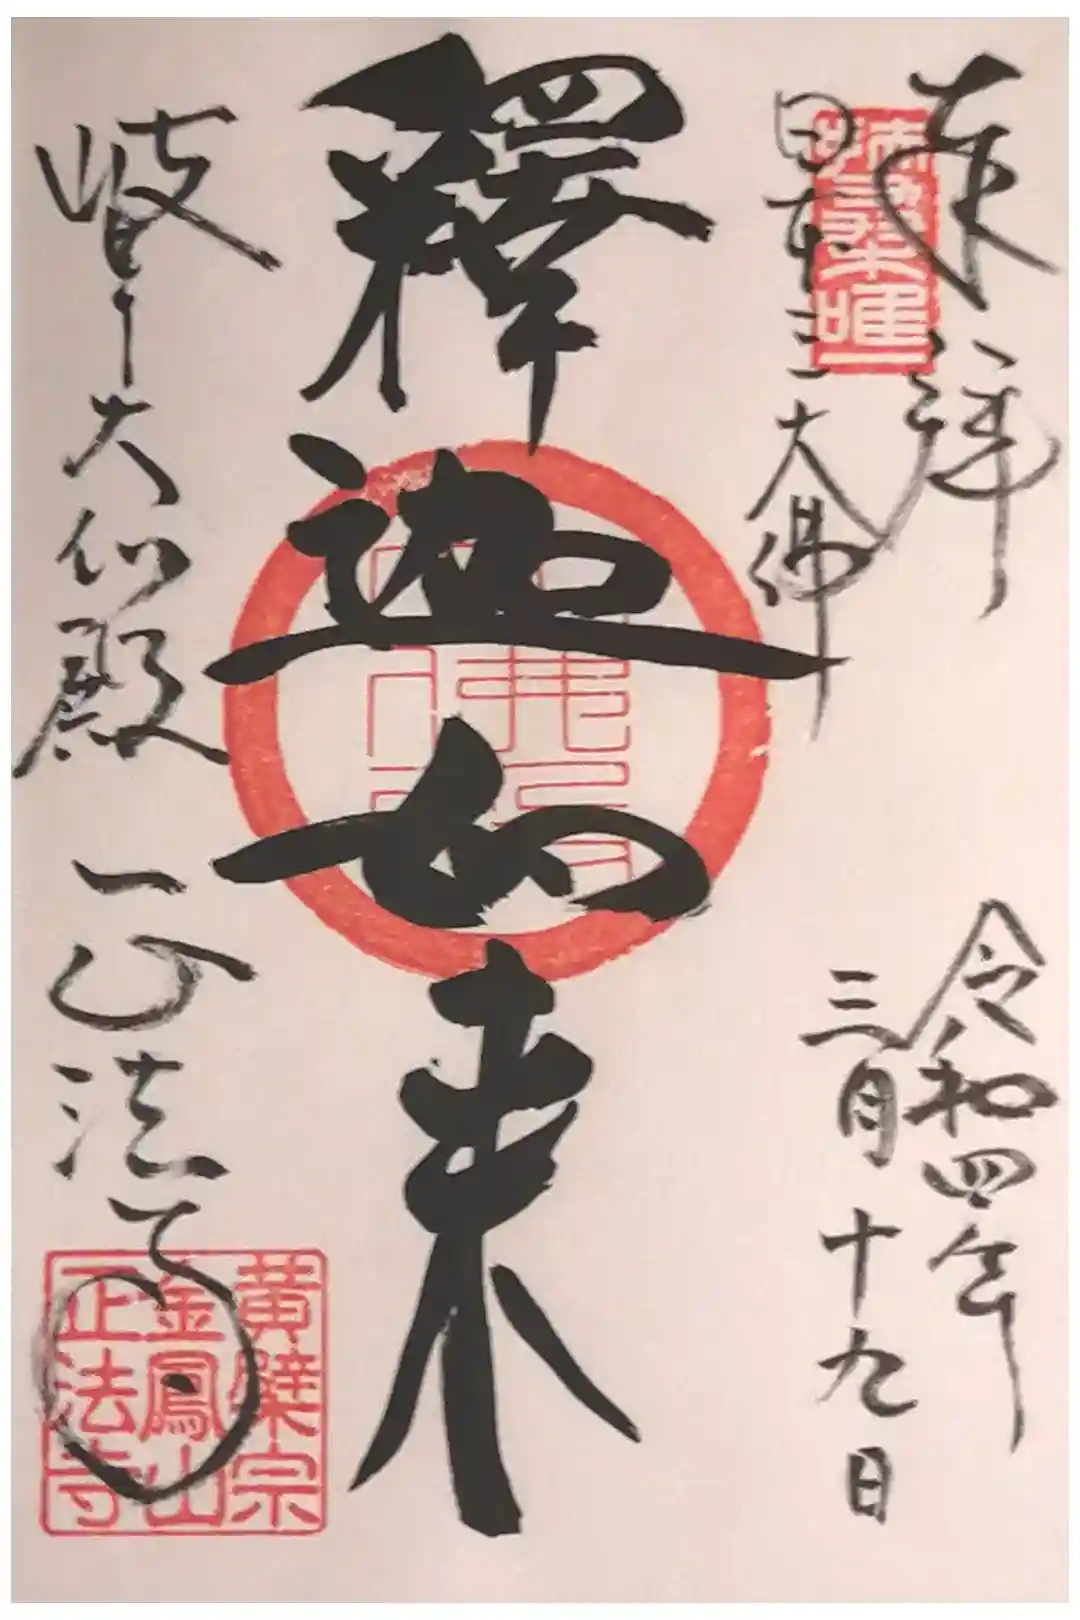 奉拝
日本三大佛
令和四年
三月十九日
釋迦如来
岐阜大仏殿
正法寺
黄檗宗
金鳳山
正法寺